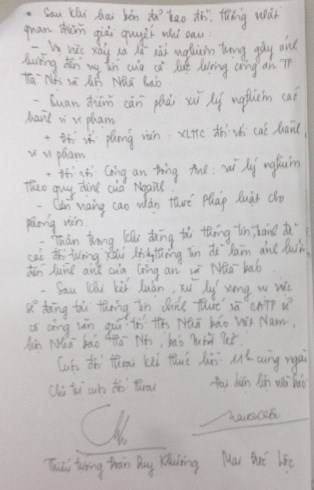 * Sau khi hai bên đã trao đổi, thống nhất
quan điểm giải quyết như sau:
- Vụ việc xảy ra là rất nghiêm trọng gây ảnh
hưởng đến uy tín của cả lực lượng công an TP
Hà Nội và hội Nhà báo
- Quan điểm cần phải xử lý nghiêm các
hành vi vi phạm
+ Đối với phóng viên: XLHC đối với các hành
vi vi phạm
+ Đối với Công an Đông Anh: xử lý nghiêm
theo quy định của Ngành.
- Cần nâng cao nhận thức pháp luật cho
phóng viên.
- Thận trọng khi đăng tải thông tin, tránh để
các đối tượng xấu thông tin để làm ảnh hưởng
đến hình ảnh của Công an và Nhà báo
- Sau khi kết luận, xử lý xong vụ việc
sẽ đăng tải thông tin chính thức và CATP sẽ
có công văn gửi tới Hội Nhà báo Việt Nam,
hội Nhà báo Hà Nội, báo Tuổi trẻ.
Cuộc đối thoại kết thúc hồi 11h cùng ngày
Chủ trì cuộc đối thoại Đại diện hội nhà báo
Thiếu tướng Đoàn Duy Khương Mai Đức Lộc